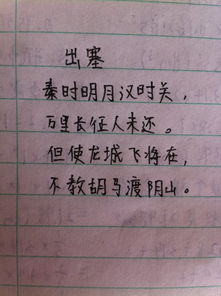 出塞
秦时明月汉时关，
万里长征人未还。
但使龙城飞将在，
不教胡马渡阴山。